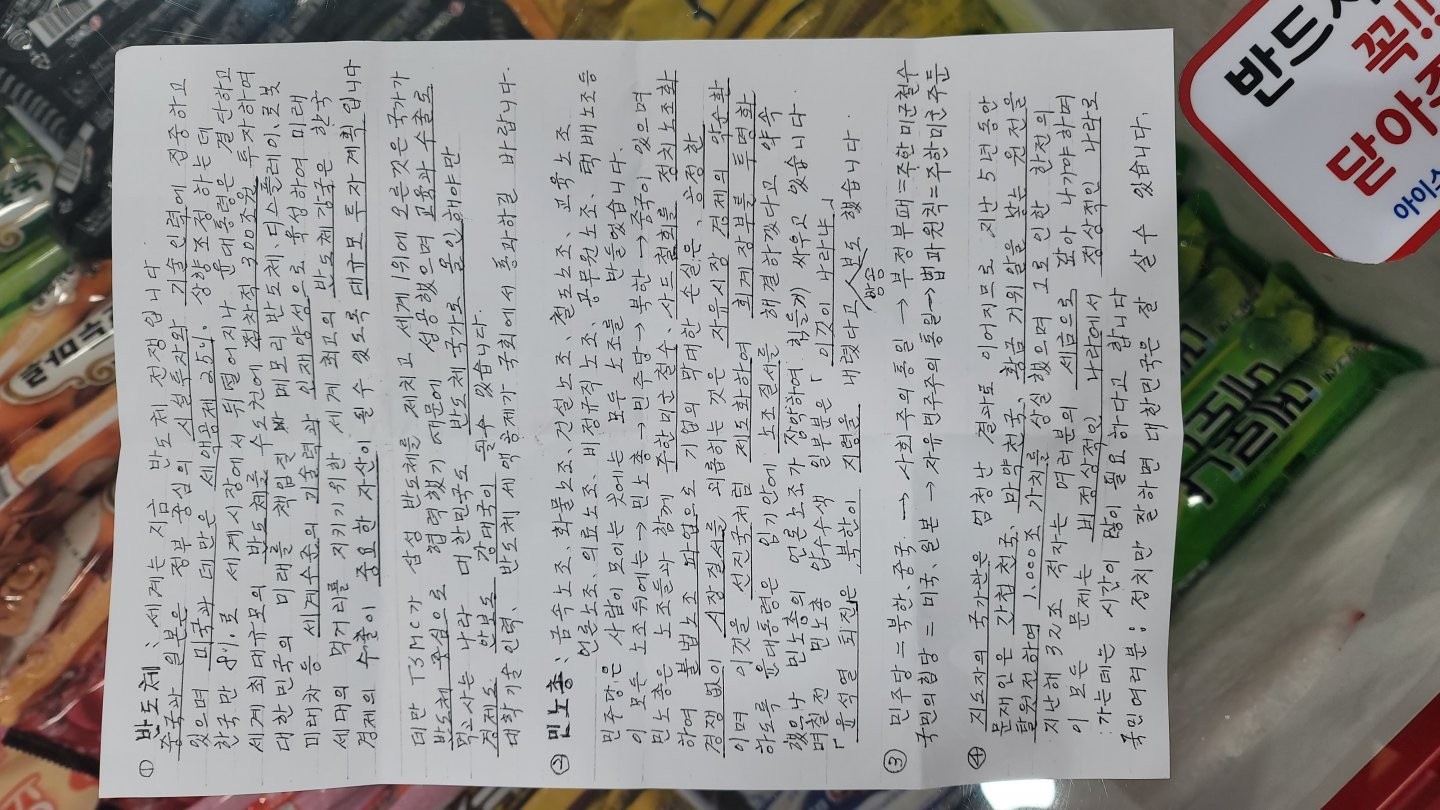 ① 반도체 : 세계는 지금 반도체 전쟁입니다
중국과 일본은 정부 중심의 시설투자와 기술인력에 집중하고
있으며 미국과 대만은 세액공제 25%. 상향조정하는데
한국만 8%.로 세계시장에서 뒤떨어지나 윤대통령은 결단하고
세계최대규모의 반도체를 수도권에 점차적 300조원 투자하여
대한민국의 미래를 책임질 메모리반도체, 디스플레이, 로봇
미래차 등 세계수준의 기술력과 인재양성으로 육성하여 미래
세대의 먹거리를 지키기위한 세계 최고의 반도체강국은 한국
경제의 수출이 중요한 자산이 될수 있도록 대규모 투자계획입니다
대만 TSMC가 삼성 반도체를 제치고 세계위에 오른것은 국가가
반도체 중심으로 협력했기 때문에 성공했으며 교육과 수출로
먹고사는 나라 대한민국도 반도체 국가로 올인해야만
경제도 안보도 강대국이 될수 있습니다.
대학기술인력, 반도체 세액공제가 국회에서 통과하길 바랍니다.
② 민노총 : 금속노조, 화물노조, 건설노조, 철도노조, 교육노조
언론노조, 의료노조, 비정규직노조, 공무원노조, 택배노조등
민주당은 사람이 모이는 곳에는 모두 노조를 만들었습니다.
이 모든 노조뒤에는→민노총→민주당→북한→중국이 있으며
민노총은 노조들과 함께 주한미군철수, 사드철회를 정치노조화
하여 불법노조 파업으로 기업의 막대한 손실은, 공정한
경쟁없이 시장질서를 외롭히는것은 자유시장 경제의 악순환
이며 이것을 선진국처럼 제도화하여 회계장부를 투명화
하도록 윤대통령은 임기안에 노조질서를 해결하겠다고 약속
했으나 민노총의 언론노조가 장악하여 힘들게 싸우고 있습니다.
며칠전 민노총 압수수색 일부분은 「이것이 나라냐」
「윤석열 퇴진」은 북한이 지령을 내렸다고 방송 보도 했습니다.
③ 민주당=북한, 중국. → 사회주의통일 → 부정부패=주한미군철수
국민의힘당=미국, 일본 → 자유민주주의 통일→법과원칙=주한미군주둔
④ 지도자의 국가관은 엄청난 결과로 이어지므로 지난 5년동안
문재인은 간첩천국, 마약천국, 황금거위알을 낳는 원전을
탈원전하여 1,000조 가치를 상실했으며 그로인한 한전의
지난해 32조 적자는 여러분의 세금으로 갚아 나가야하며
이 모든 문제는 비정상적인 나라에서 정상적인 나라로
가는데는 시간이 많이 필요하다고 합니다
국민여러분 : 정치만 잘하면 대한민국은 잘 살수 있습니다.
반드시
꼭!!
닫아주
아이스